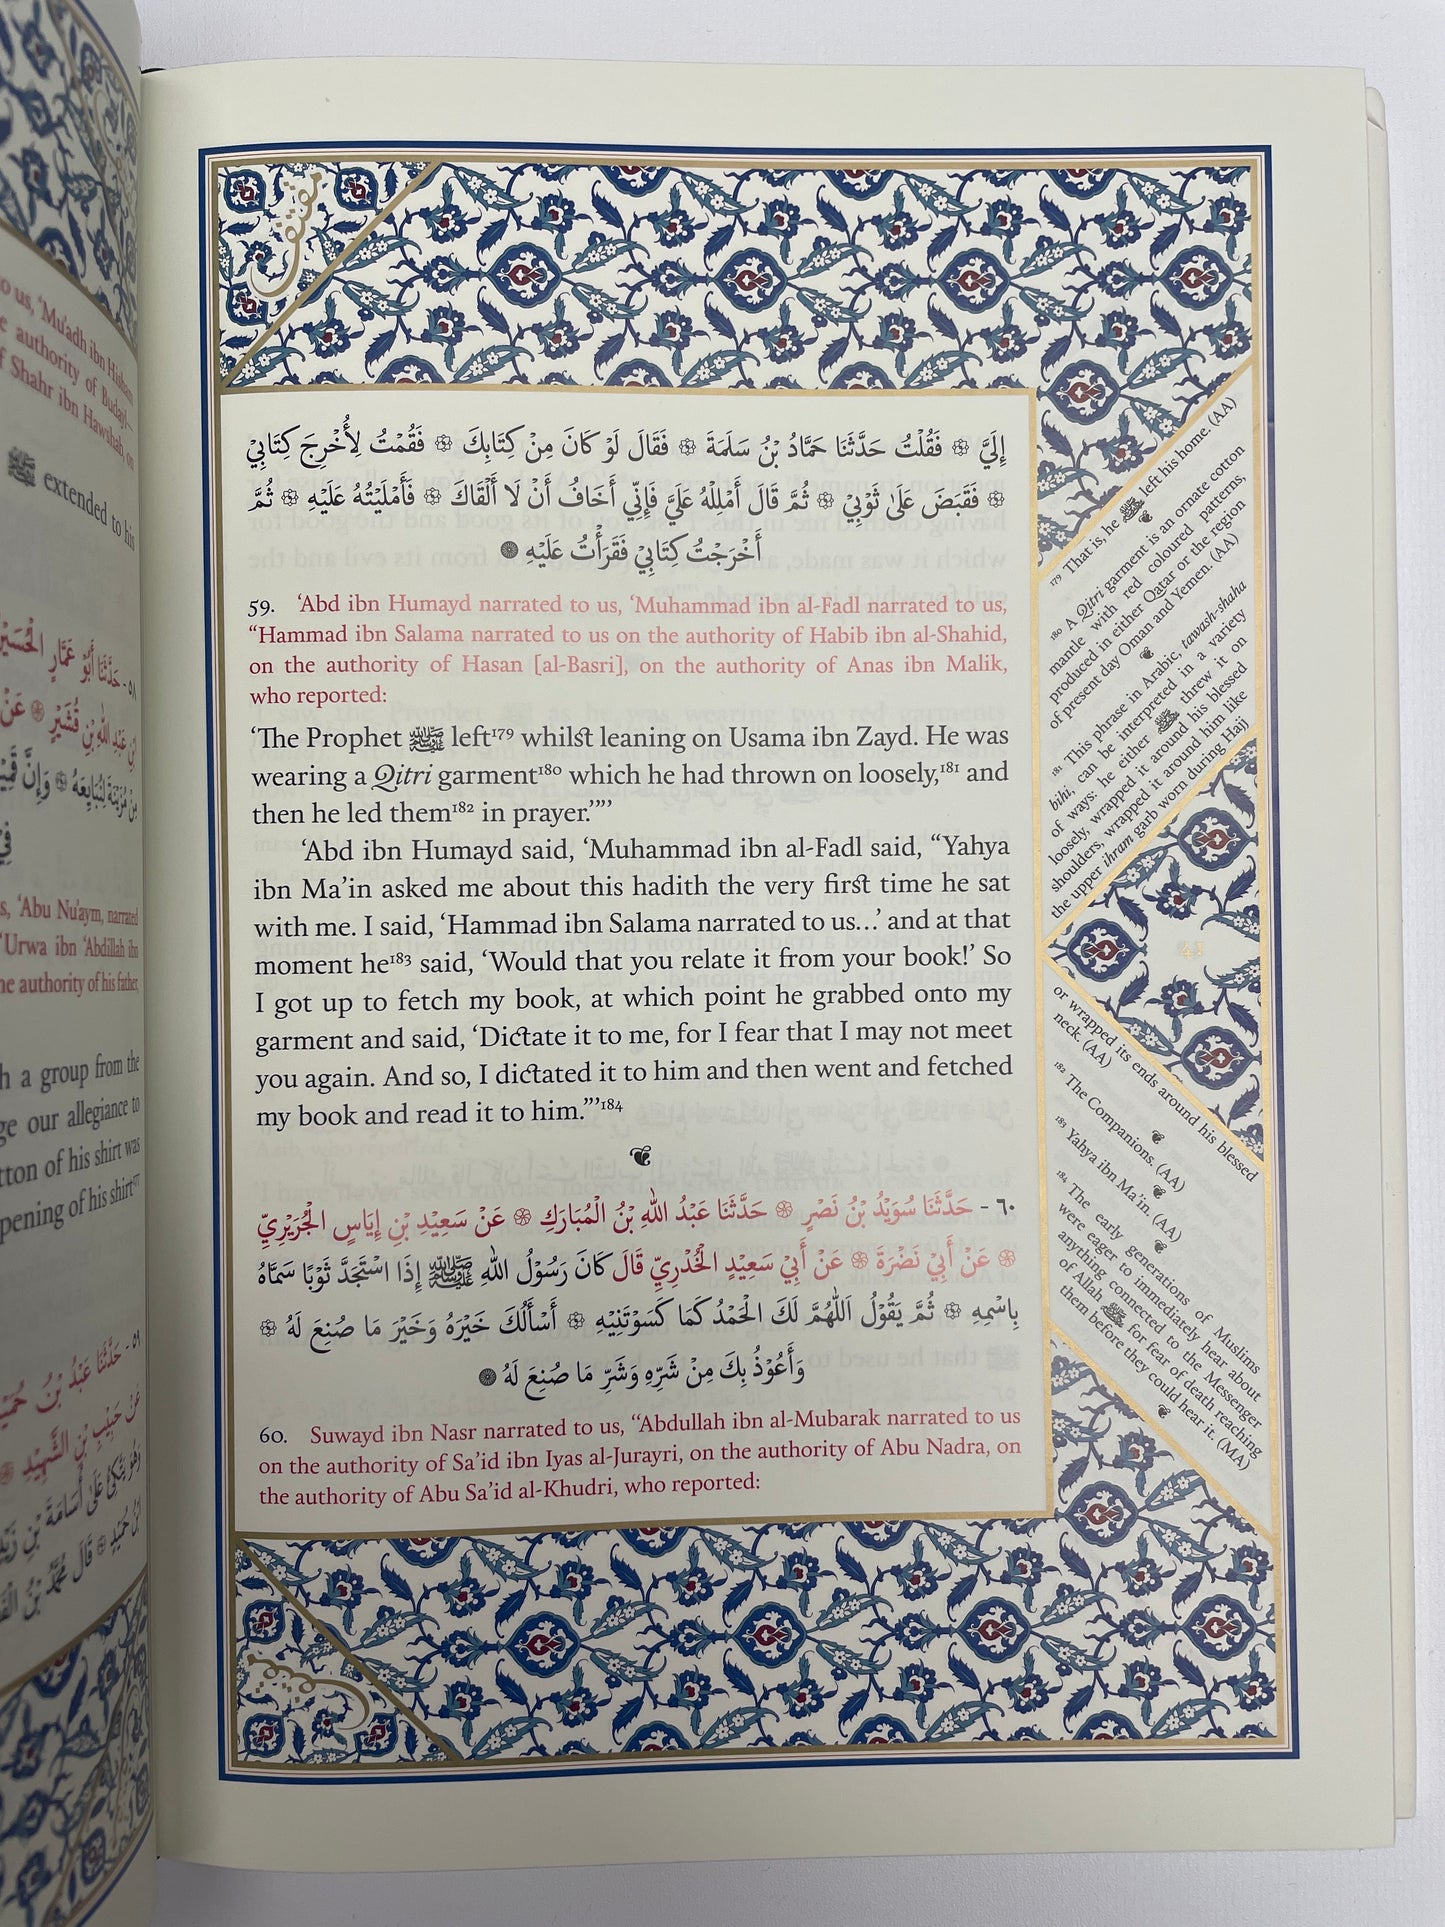 to us, ‘Mu‘adh ibn Hisham
authority of Budayl—
f Shahr ibn Hawshab, on
ﷺ extended to his
٥٨ - حَدَّثَنَا أَبُوْ عَمَّارٍ الْحُسَيْن
s, ‘Abu Nu‘aym, narrated
‘Urwa ibn ‘Abdillah ibn
he authority of his father,
h a group from the
ge our allegiance to
tton of his shirt was
pening of his shirt¹⁷⁷
إِلَيَّ ۞ فَقُلْتُ حَدَّثَنَا حَمَّادُ بْنُ سَلَمَةَ ۞ فَقَالَ لَوْ كَانَ مِنْ كِتَابِكَ ۞ فَقُمْتُ لِأُخْرِجَ كِتَابِيْ
۞ فَقَبَضَ عَلَىٰ ثَوْبِيْ ۞ ثُمَّ قَالَ أَمْلِلْهُ عَلَيَّ فَإِنِّي أَخَافُ أَنْ لَا أَلْقَاكَ ۞ فَأَمْلَيْتُهُ عَلَيْهِ ۞ ثُمَّ
أَخْرَجْتُ كِتَابِيْ فَقَرَأْتُ عَلَيْهِ
59. ‘Abd ibn Humayd narrated to us, ‘Muhammad ibn al-Fadl narrated to us,
“Hammad ibn Salama narrated to us on the authority of Habib ibn al-Shahid,
on the authority of Hasan [al-Basri], on the authority of Anas ibn Malik,
who reported:
‘The Prophet ﷺ left¹⁷⁹ whilst leaning on Usama ibn Zayd. He was
wearing a Qitri garment¹⁸⁰ which he had thrown on loosely,¹⁸¹ and
then he led them¹⁸² in prayer.’”’
‘Abd ibn Humayd said, ‘Muhammad ibn al-Fadl said, “Yahya
ibn Ma‘in asked me about this hadith the very first time he sat
with me. I said, ‘Hammad ibn Salama narrated to us…’ and at that
moment he¹⁸³ said, ‘Would that you relate it from your book!’ So
I got up to fetch my book, at which point he grabbed onto my
garment and said, ‘Dictate it to me, for I fear that I may not meet
you again. And so, I dictated it to him and then went and fetched
my book and read it to him.”’¹⁸⁴
٦٠ - حَدَّثَنَا سُوَيْدُ بْنُ نَصْرٍ ۞ حَدَّثَنَا عَبْدُ اللهِ بْنُ الْمُبَارَكِ ۞ عَنْ سَعِيْدِ بْنِ إِيَاسٍ الْجُرَيْرِيِّ
۞ عَنْ أَبِيْ نَضْرَةَ ۞ عَنْ أَبِيْ سَعِيْدٍ الْخُدْرِيِّ قَالَ كَانَ رَسُوْلُ اللهِ ﷺ إِذَا اسْتَجَدَّ ثَوْبًا سَمَّاهُ
بِاسْمِهِ ۞ ثُمَّ يَقُوْلُ اَللّٰهُمَّ لَكَ الْحَمْدُ كَمَا كَسَوْتَنِيْهِ ۞ أَسْأَلُكَ خَيْرَهُ وَخَيْرَ مَا صُنِعَ لَهُ ۞
وَأَعُوْذُ بِكَ مِنْ شَرِّهِ وَشَرِّ مَا صُنِعَ لَهُ
60. Suwayd ibn Nasr narrated to us, “Abdullah ibn al-Mubarak narrated to us
on the authority of Sa‘id ibn Iyas al-Jurayri, on the authority of Abu Nadra, on
the authority of Abu Sa‘id al-Khudri, who reported:
¹⁷⁹ That is, he ﷺ left his home. (AA)
¹⁸⁰ A Qitri garment is an ornate cotton
mantle with red coloured patterns,
produced in either Qatar or the region
of present day Oman and Yemen. (AA)
¹⁸¹ This phrase in Arabic, tawash-shaha
bihi, can be interpreted in a variety
of ways: he either ﷺ threw it on
loosely, wrapped it around his blessed
shoulders, wrapped it around him like
the upper ihram garb worn during Hajj
43
or wrapped its ends around his blessed
neck. (AA)
¹⁸² The Companions. (AA)
¹⁸³ Yahya ibn Ma‘in. (AA)
¹⁸⁴ The early generations of Muslims
were eager to immediately hear about
anything connected to the Messenger
of Allah ﷺ for fear of death reaching
them before they could hear it. (MA)